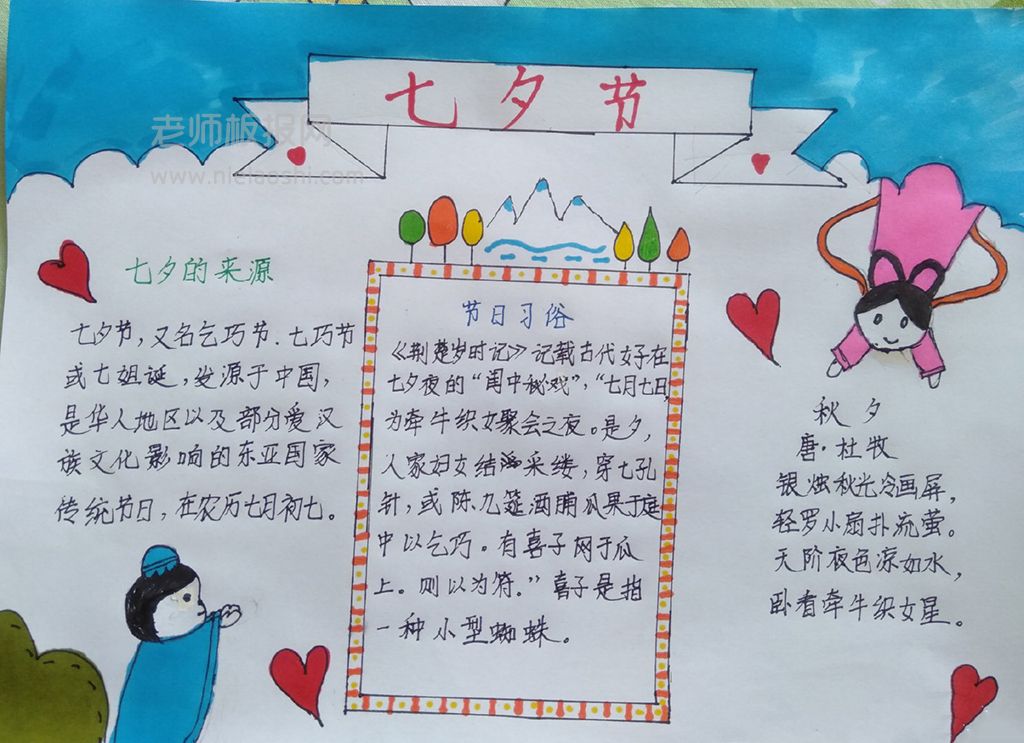 七夕节
老师板报网
七夕的来源
七夕节，又名乞巧节．七巧节
或七姐诞，发源于中国，
是华人地区以及部分受汉
族文化影响的东亚国家
传统节日，在农历七月初七。
节日习俗
《荆楚岁时记》记载古代女子在
七夕夜的“闺中秘戏”，“七月七日，
为牵牛织女聚会之夜。是夕，
人家妇女结采缕，穿七孔
针，或陈几筵酒脯瓜果于庭
中以乞巧。有喜子网于瓜
上。则以为符。”喜子是指
一种小型蜘蛛。
秋夕
唐·杜牧
银烛秋光冷画屏，
轻罗小扇扑流萤。
天阶夜色凉如水，
卧看牵牛织女星。